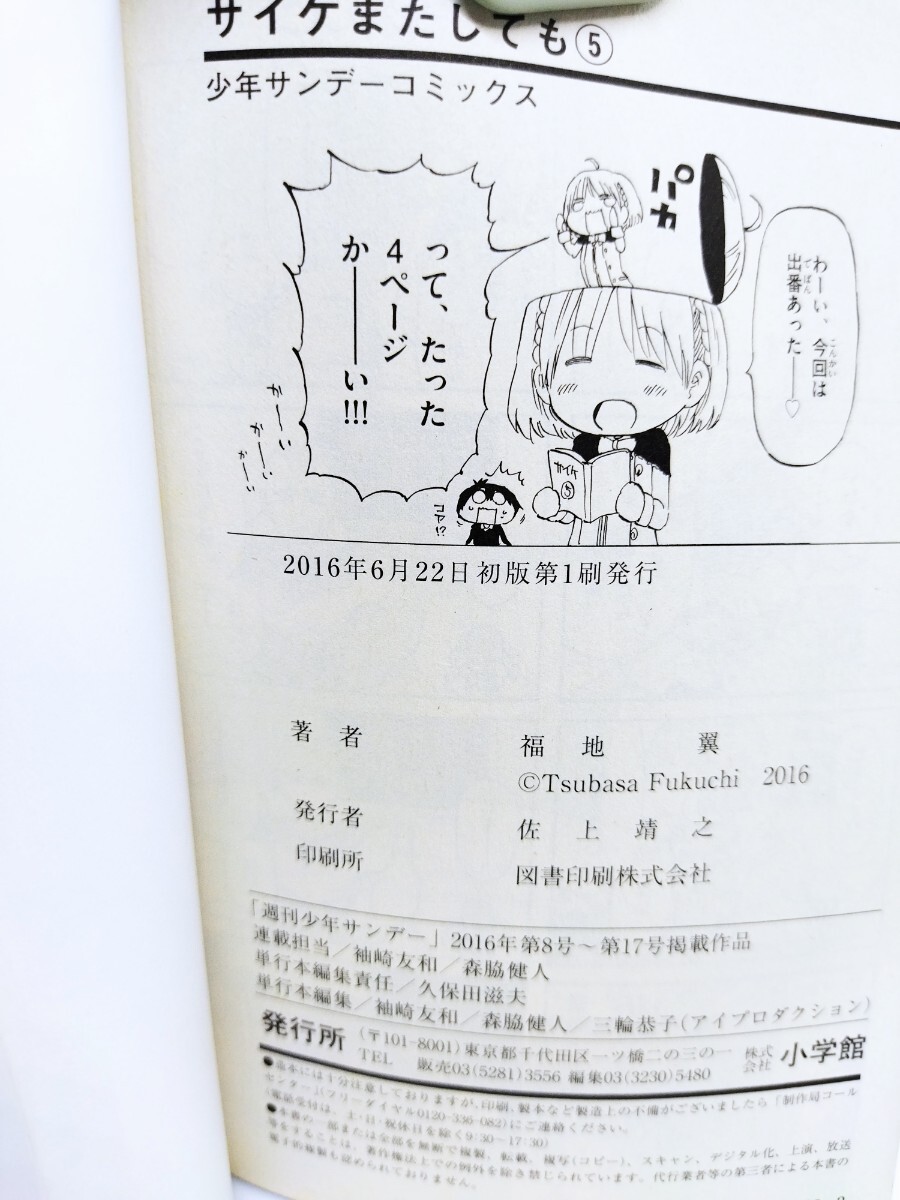 サイケまたしても⑤
少年サンデーコミックス
わーい、今回は
出番あった――♡
パカ
って、たった
4ページ
か――い!!!
かーーい
かーーい
かーーい
サイケ
5
コワ!?
2016年6月22日初版第1刷発行
著者 福地 翼
©Tsubasa Fukuchi 2016
発行者 佐上靖之
印刷所 図書印刷株式会社
「週刊少年サンデー」2016年第8号~第17号掲載作品
連載担当/袖崎友和/森脇健人
単行本編集責任/久保田滋夫
単行本編集/袖崎友和/森脇健人/三輪恭子(アイプロダクション)
発行所 (〒101-8001)東京都千代田区一ツ橋二の三の一 株式会社 小学館
TEL 販売03(5281)3556 編集03(3230)5480
●造本には十分注意しておりますが、印刷、製本など製造上の不備がございましたら「制作局コール
センター」(フリーダイヤル0120-336-082)にご連絡ください。
(電話受付は、土・日・祝休日を除く9:30~17:30)
●本書の一部または全部を無断で複製、転載、複写(コピー)、スキャン、デジタル化、上演、放送
等をすることは、著作権法上での例外を除き禁じられています。代行業者等の第三者による本書の
電子的複製も認められておりません。